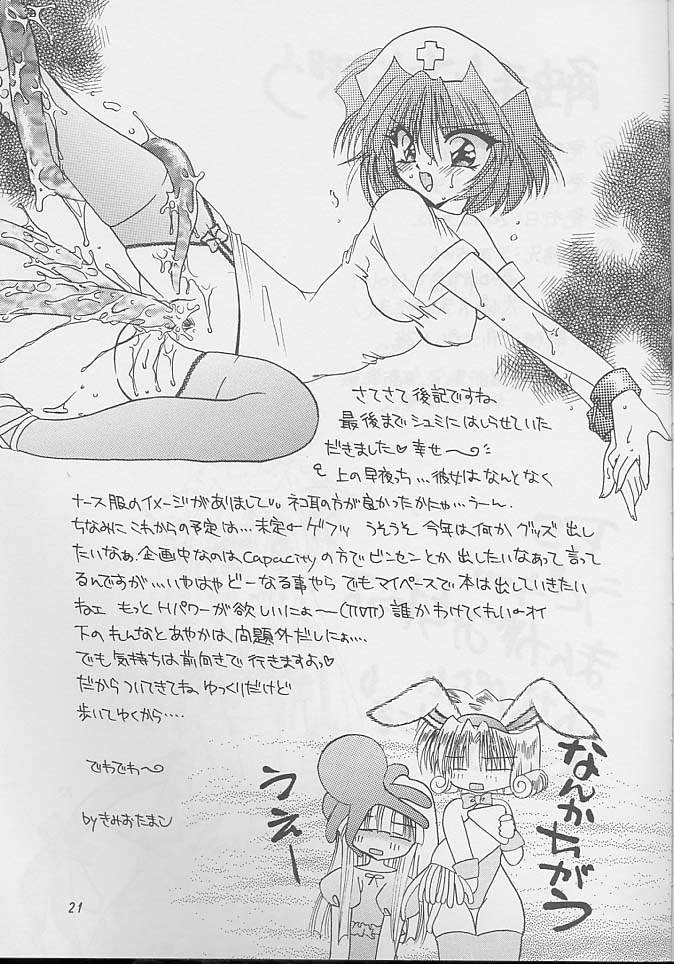 さてさて後記ですね
最後までシュミにはしらせていた
だきました♡幸せ〜
上の早夜っち…彼女はなんとなく
ナース服のイメージがありまして。ネコ耳の方が良かったかにゃ…うーん。
ちなみにこれからの予定は…未定←ゲフッ うそうそ今年は何かグッズ出し
たいなぁ。企画中なのはCapacityの方でビンセンとか出したいなあって言って
るんですが…いやはやどーなる事やら でもマイペースで本は出していきたい
ねェ もっとHパワーが欲しいにょ〜(ΠロΠ)誰かわけてくれい←オイ
下のもんなとあやかは、問題外だしにぉ….
でも気持ちは前向きで行きますよっ♡
だからついてきてね ゆっくりだけど
歩いてゆくから….
でわでわ〜
byきみおたまこ
なんかちがう
うえー
21